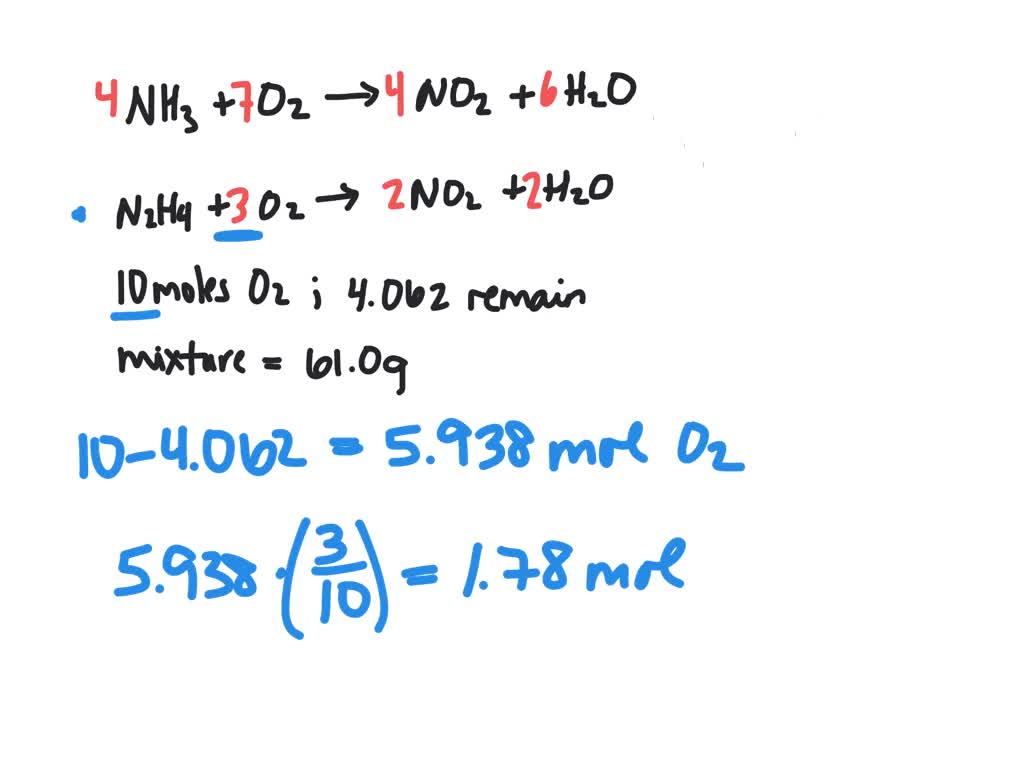 4NH₃ + 7O₂ → 4NO₂ + 6H₂O
• N₂H₄ + 3O₂ → 2NO₂ + 2H₂O
10 moles O₂ ; 4.062 remain
mixture = 61.0g
10 - 4.062 = 5.938 mol O₂
5.938 · (3/10) = 1.78 mol